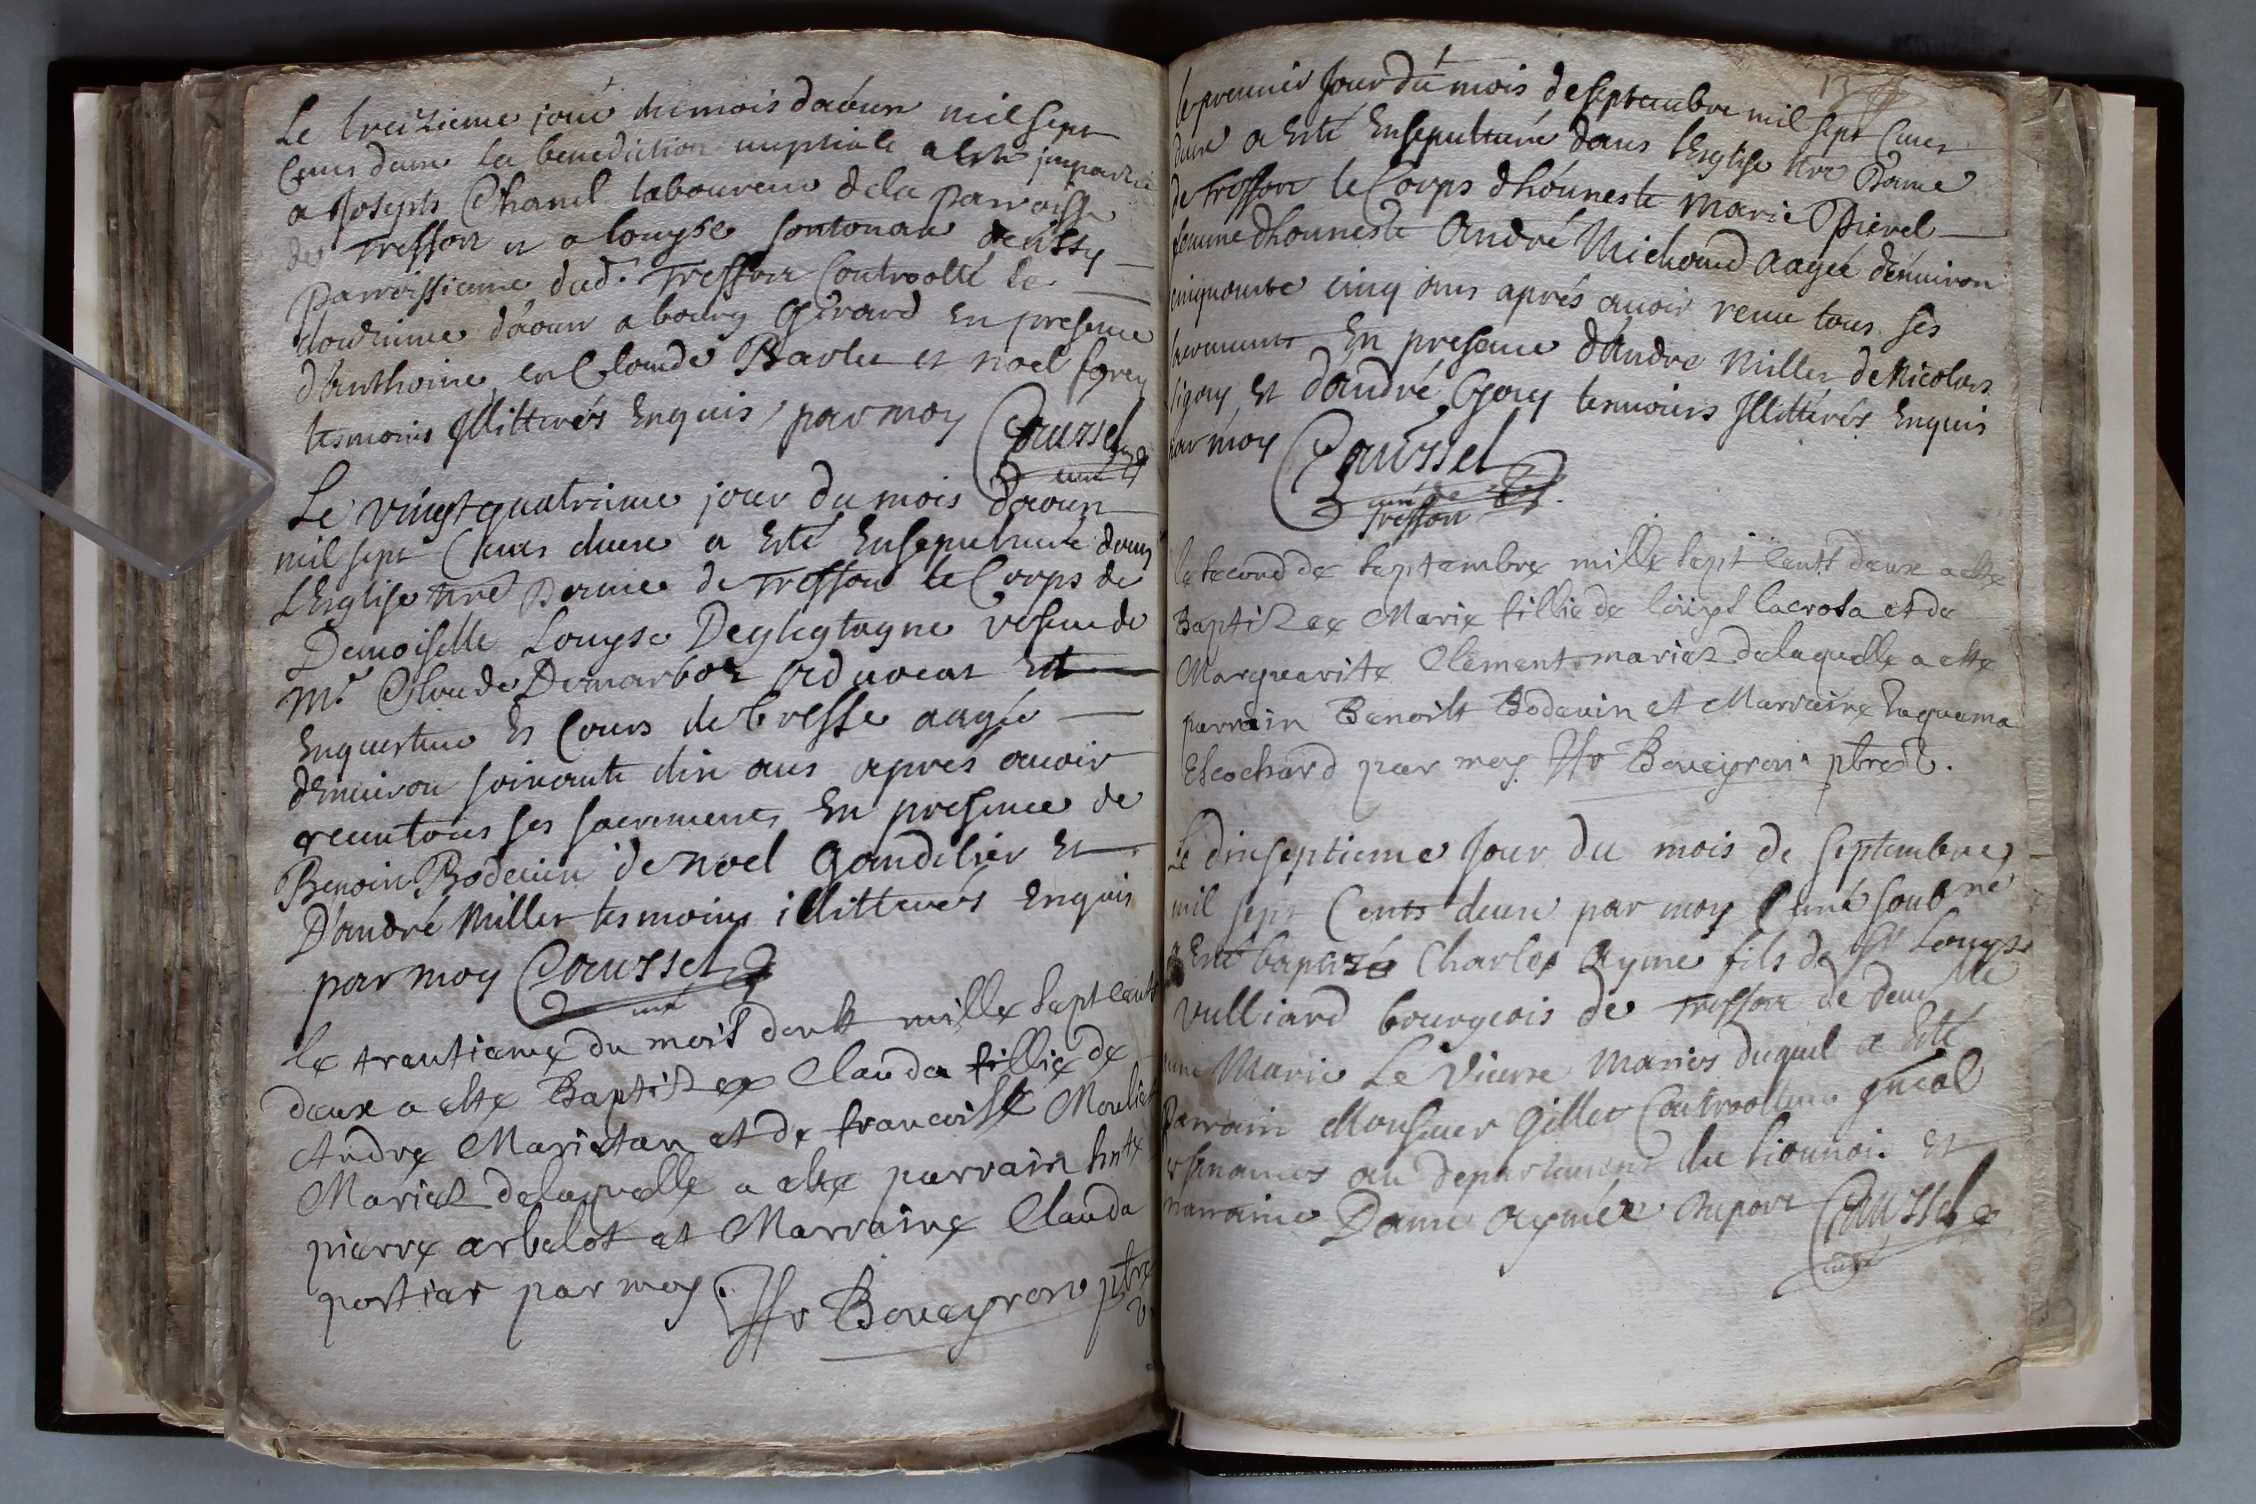 Le treizieme jour du mois daoun mil sept
Cens deux la benediction nuptiale a esté impartie
a Joseph Chanel laboureur dela parroisse
de Treffort et a louyse
parroissienne dud. Treffort Controollé le
douzieme d'aoun a bourg Girard En presence
d'Anthoine et Claude Barlu et noel forey
tesmoins Jllitterés Enquis par moy Caussel
curé
Le vingt quatrieme jour du mois daoun
mil sept Cens deux a Esté Ensepulturé dans
L'Esglise nre Dame de Treffort le Corps de
Demoiselle Louyse vefue de
Mr. Claude Demarbos Aduocat Et
Enquesteur Es Cours de bresse aagée
d'Enuiron soixante dix ans apres auoir
receu tous ses sacrements En presence de
Benoin Bodeuin de noel Gondelier Et
D'andré Miller tesmoins illitterés Enquis
par moy Caussel
curé
le trantieme du mois doult mille sept cents
deux a este Baptizee Clauda fillie de
Andre Marietan et de francoise
Mariez delaquelle a este parrain
pierre arbelot et Marraine Clauda
portiar par moy Boueyron ptre
le premier Jour du mois de septembre mil sept Cens
deux a Esté Ensepulturé dans l'Esglise nre Dame
de Treffort le Corps dhonneste Marie Pierel
femme dhonneste André Michoud aagée d'enuiron
cinquante cinq ans aprés auoir receu tous ses
sacrements En presence d'Andre Miller de Nicolas
ligory Et d'andré Gouy tesmoins Jllitterés Enquis
par moy Caussel
curé de
Treffort
le second de septembre mille sept cents deux a este
Baptizee Marie fillie de loüys lacrosa et de
Marguerite Clement mariez delaquelle a este
parrain Benoilt Bodeuin et Marraine Iaquema
Escochard par moy Boueyron ptre
Le dixseptieme Jour du mois de septembre
mil sept Cents deux par moy Curé soubné
a Esté baptizé Charles Ayme fils de Sr Louys
vulliard bourgeois de Treffort de demlle
Marie Le Vieux Maries duquel a Esté
Parrain Monsieur Gillet Controolleur gneal
finances au departement du lionnois Et
marraine Dame Aymée duport Caussel
curé